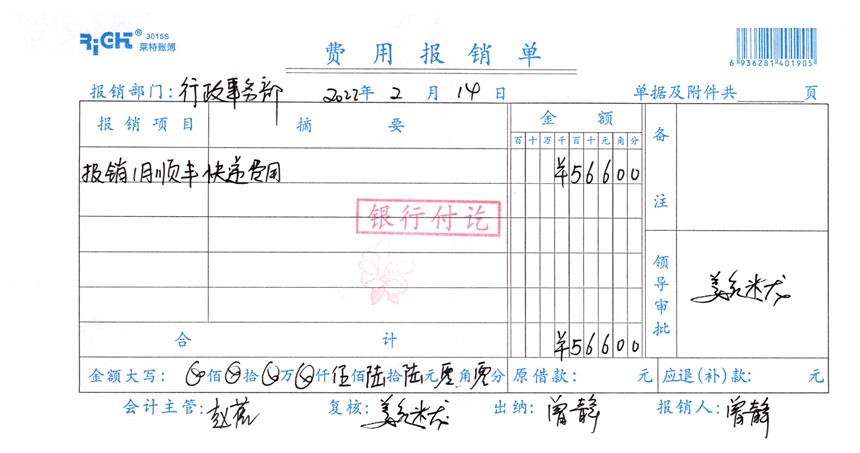 RiCH® 3015S
莱特账簿
费用报销单
6 936281 401905
报销部门: 行政事务部 2022年 2 月 14 日 单据及附件共 页
报销项目 摘要 金额 备注
百 十 万 千 百 十 元 角 分
报销1月顺丰快递费用 ¥56600
银行付讫
领导审批
合计 ¥56600
金额大写: 佰 拾 万 仟 伍佰 陆拾 陆元 零角 零分 原借款: 元 应退(补)款: 元
会计主管: 复核: 出纳: 曾静 报销人: 曾静